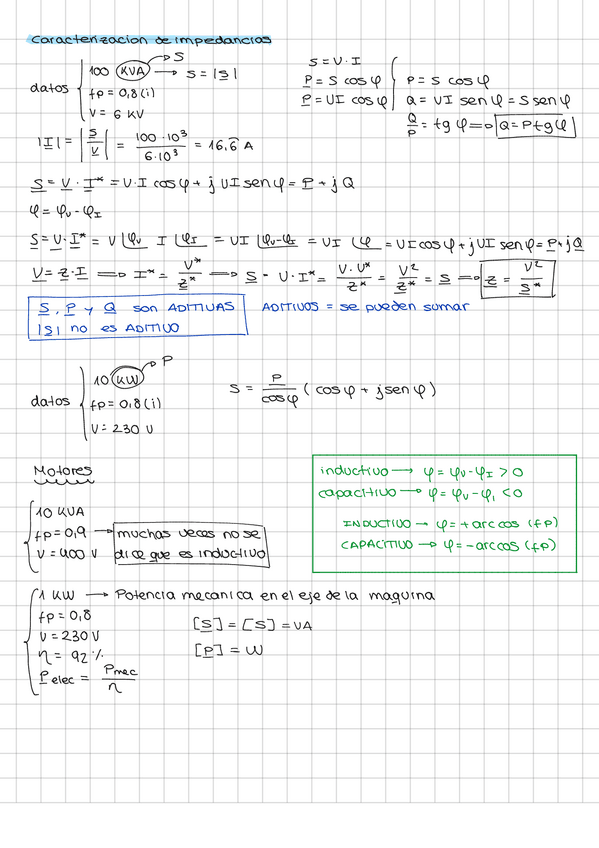 Caracterizacion de impedancias
datos { 100 KVA → S → S = |S|
fp = 0,8 (i)
V = 6 KV
S = V · I
P = S cos φ
P = UI cos φ
P = S cos φ
Q = UI sen φ = S sen φ
Q/P = tg φ ⇒ Q = P tg φ
|I| = |S/V| = 100 · 10³ / 6 · 10³ = 16,6 A
S = V · I* = U · I cos φ + j UI sen φ = P + jQ
φ = φv - φI
S = U · I* = V ∠φv I ∠φI = UI ∠φv-φI = UI ∠φ = UI cos φ + j UI sen φ = P + jQ
V = Z · I ⇒ I* = V*/Z* ⇒ S = U · I* = V · V*/Z* = V²/Z* = S ⇒ Z = V²/S*
S, P y Q son ADITIVAS
|S| no es ADITIVO
ADITIVOS = se pueden sumar
datos { 10 KW → P
fp = 0,8 (i)
V = 230 V
S = P/cos φ (cos φ + j sen φ)
Motores
10 KVA
fp = 0,9 → muchas veces no se
V = 400 V dice que es inductivo
inductivo → φ = φv - φI > 0
capacitivo → φ = φv - φI < 0
INDUCTIVO → φ = + arc cos (fp)
CAPACITIVO → φ = - arc cos (fp)
1 KW → Potencia mecanica en el eje de la maquina
fp = 0,8
V = 230 V
η = 92 %
P elec = Pmec/η
[S] = [S] = VA
[P] = W